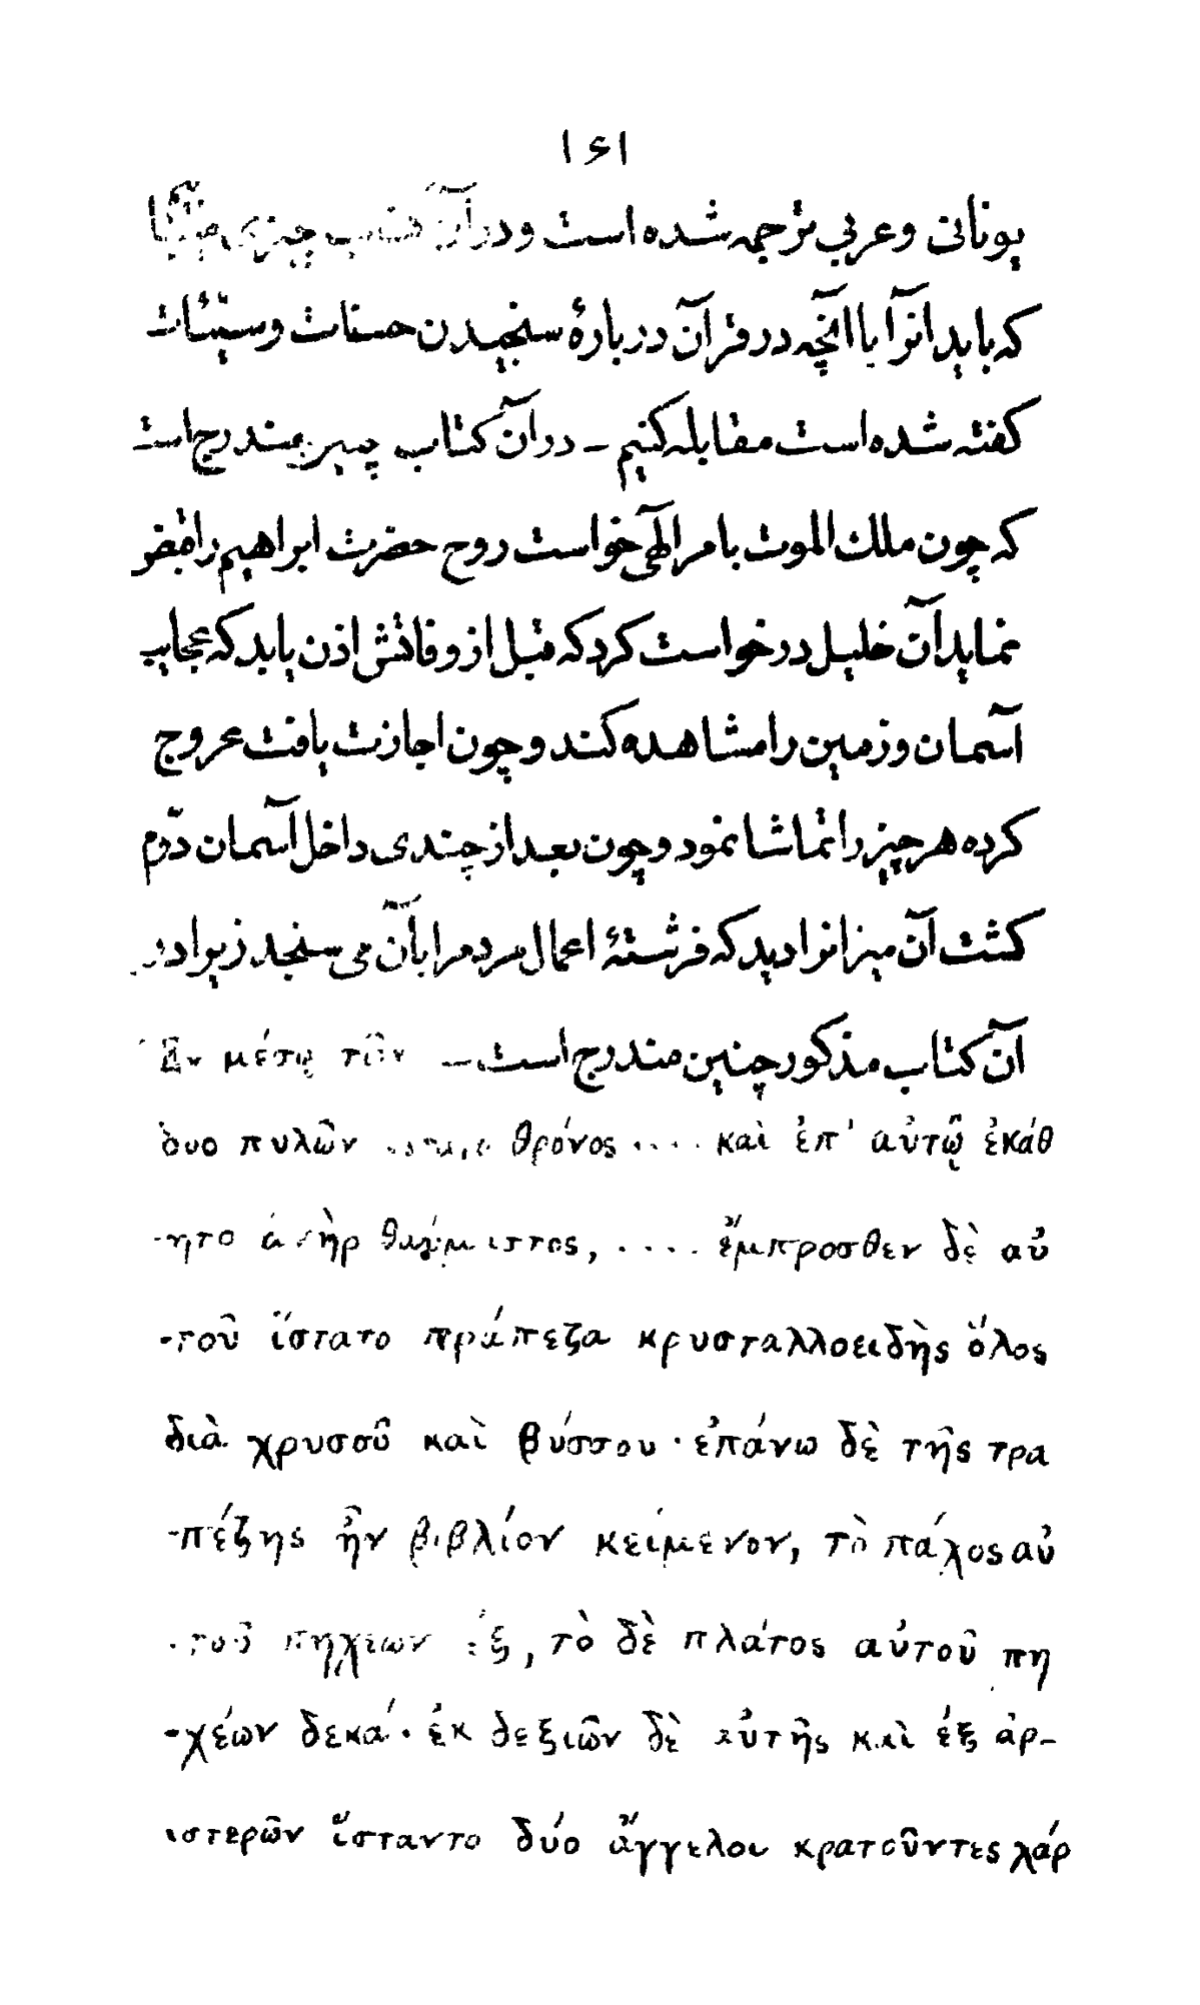 ۱۶۱
یونانی و عربی ترجمه شده است و در آن کتاب چیزی
که باید انرا با انچه در قرآن در بارهٔ سنجیدن حسنات و سیّئات
کفته شده است مقابله کنیم – در آن کتاب چنین مندرج است
که چون ملك الموت بامر الٓهی خواست روح حضرت ابراهیم را قبض
نماید آن خلیل درخواست کرد که قبل از وفاتش اذن یابد که عجایب
آسمان و زمین را مشاهده کند و چون اجازت یافت عروج
کرده هر چیز را تماشا نمود و چون بعد از چندی داخل آسمان دوّم
کشت آن میزانرا دید که فرشتهٔ اعمال مردمرا بآن می سنجد زیرا در
آن کتاب مذکور چنین مندرج است – Ἐν μέσῳ τῶν
δυο πυλῶν θρόνος .... καὶ ἐπ' αὐτῷ ἐκάθ
-ητο ἀνὴρ θαυμαστὸς, .... ἔμπροσθεν δὲ αὐ
-τοῦ ἵστατο τράπεζα κρυσταλλοειδὴς ὅλος
διὰ χρυσοῦ καὶ βύσσου · ἐπάνω δὲ τῆς τρα
-πέζης ἦν βιβλίον κείμενον, τὸ πάχος αὐ
-τοῦ πηχέων ἕξ, τὸ δὲ πλάτος αὐτοῦ πη
-χέων δεκά · ἐκ δεξιῶν δὲ αὐτῆς καὶ ἐξ ἀρ-
ιστερῶν ἵσταντο δύο ἄγγελοι κρατοῦντες χάρ